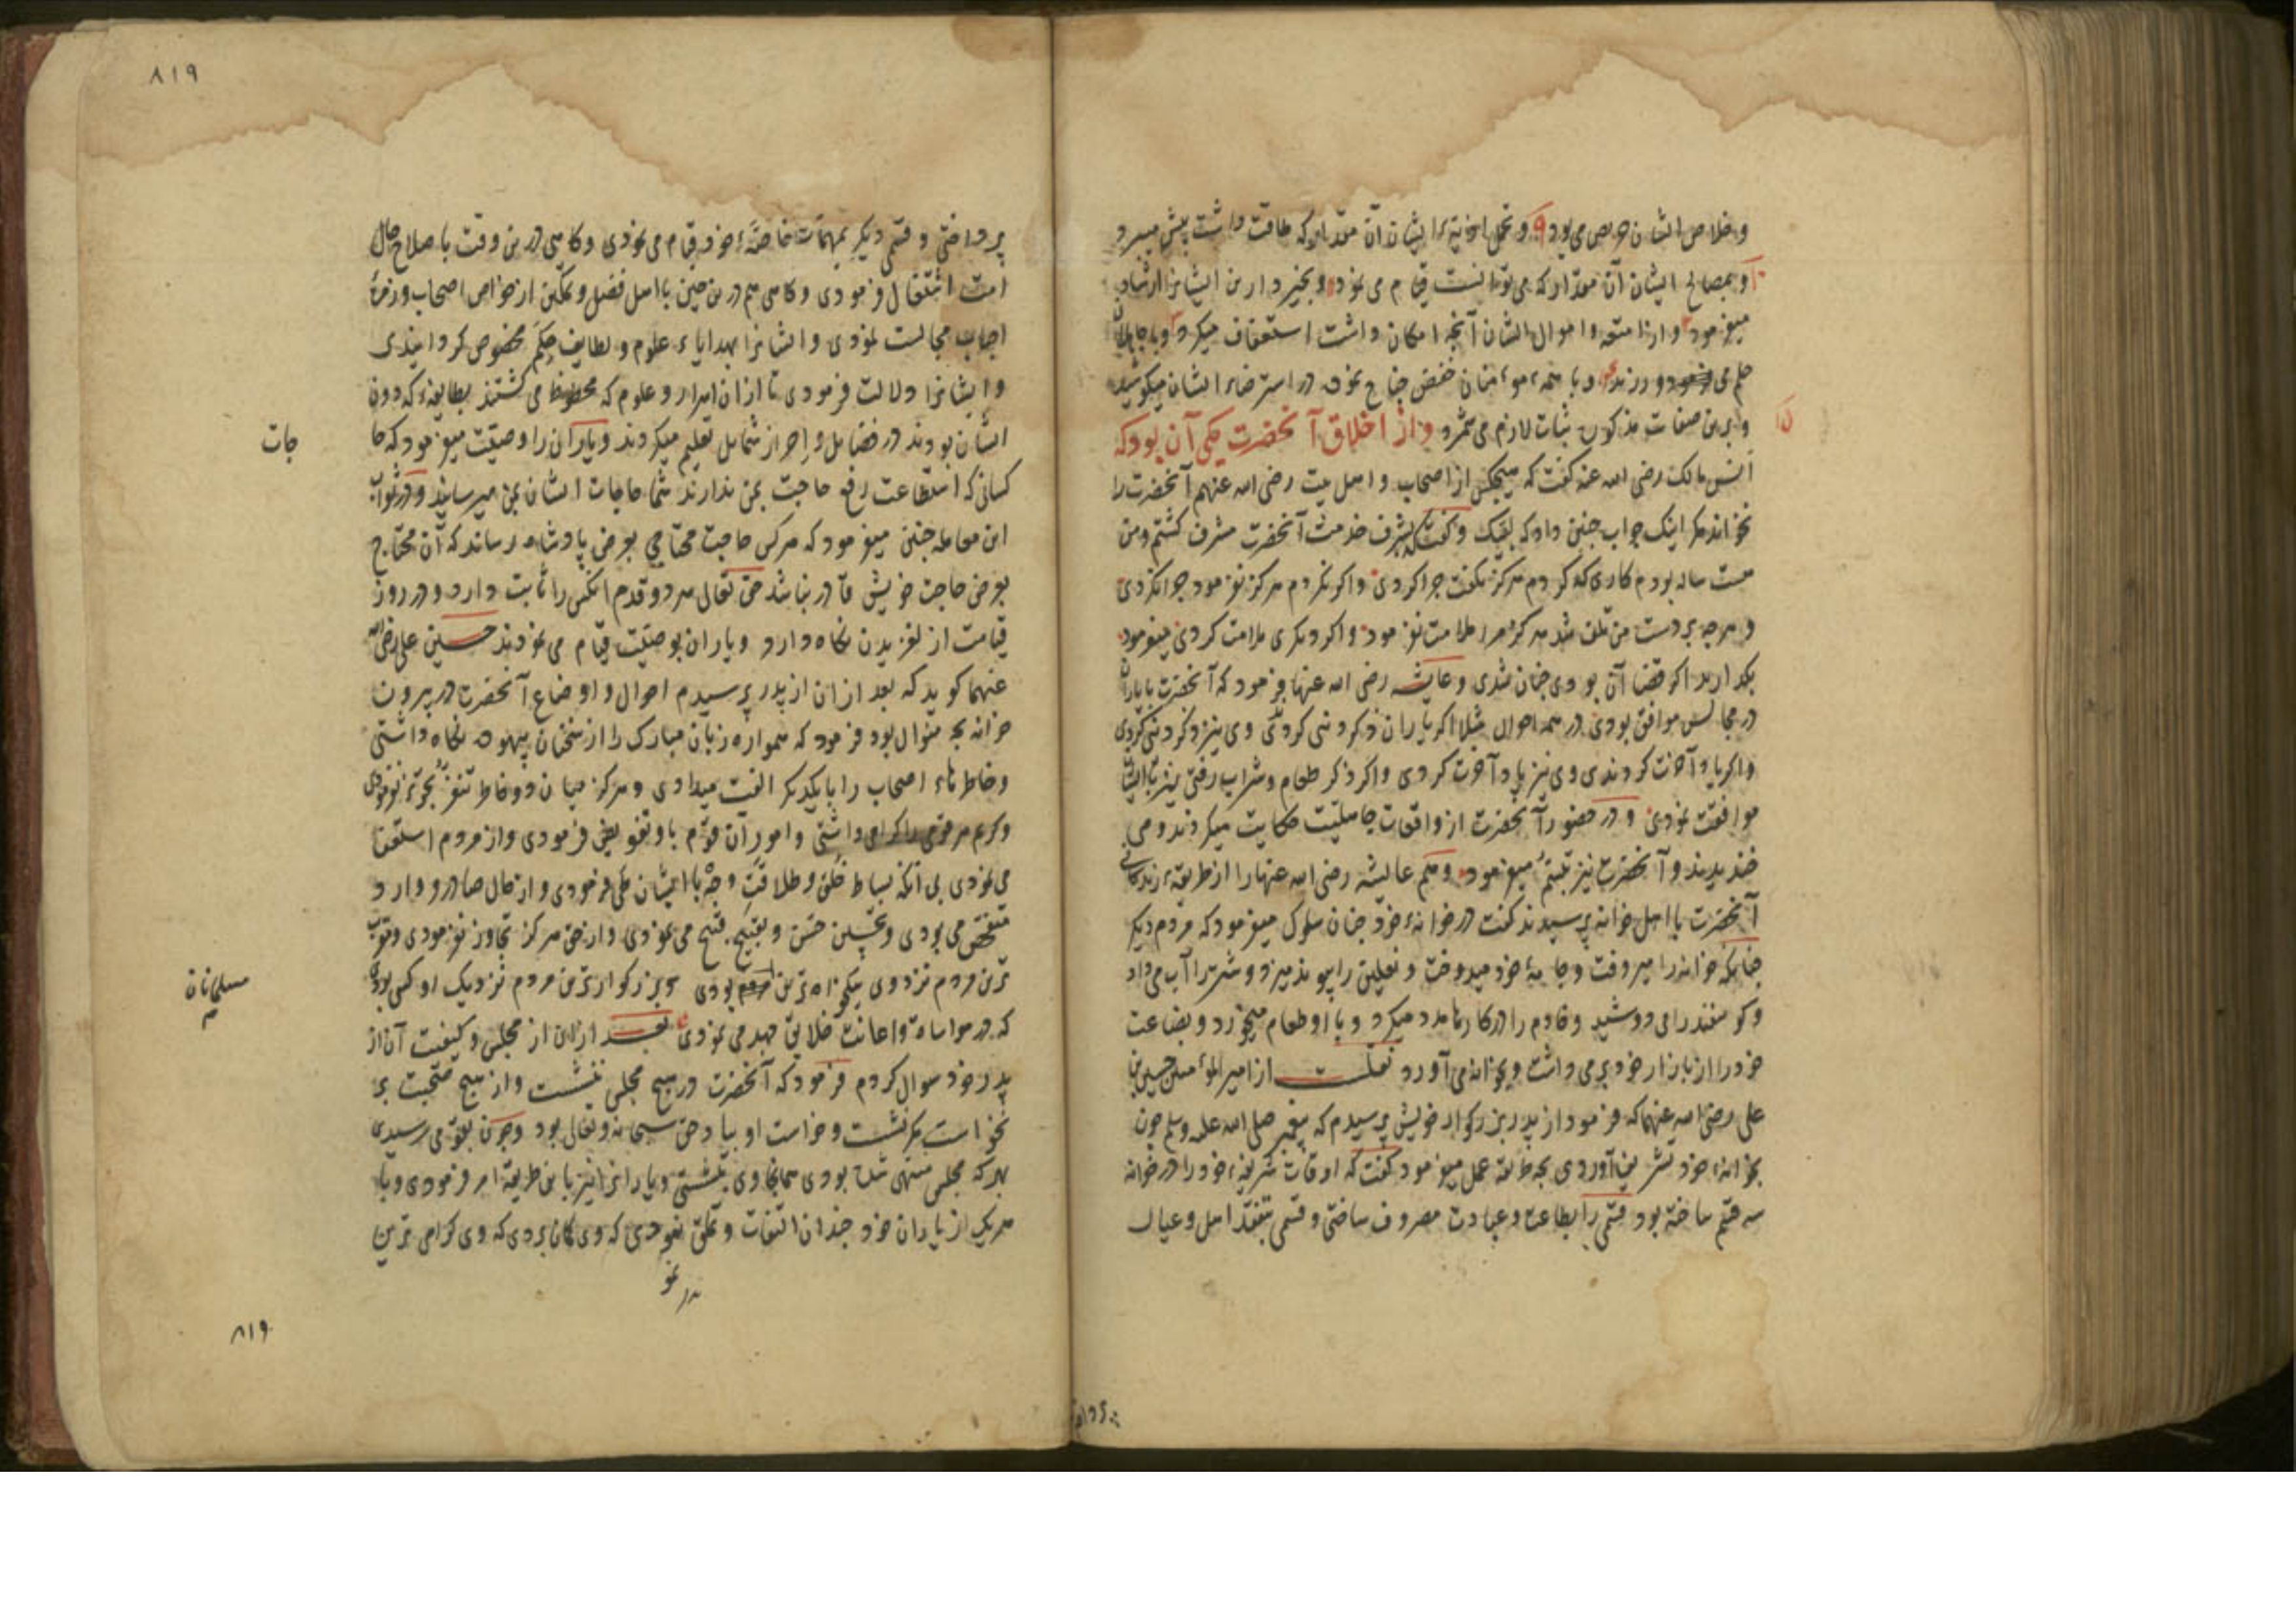 و خلاص ایشان حریص می بود و تحمل ایشان آن مقدار که طاقت داشت پیش میبرد
و بمصالح ایشان آن مقدار که می توانست قیام می نمود و بخیر دارین ایشانرا ارشاد
میفرمود و از امتعه و اموال ایشان آنچه امکان داشت استعفاف میکرد و با جاهلان
حلم می ورزید و با همه مومنان خفض جناح نموده در استرضاء ایشان میکوشید
و برین صفات مذکوره ثبات لازم می شمرد و از اخلاق آنحضرت یکی آن بود که
انس مالک رضی الله عنه کفت که هیچکس از اصحاب و اهل بیت رضی الله عنهم آنحضرت را
نخواند مکر اینک جواب چنین داد که لبیک و کفت بشرف خدمت آنحضرت مشرف کشتم و من
هشت ساله بودم کاری که کردم هرکز نکفت چرا کردی و اکر نکردم هرکز نفرمود چرا نکردی
و هرچه بر دست من تلف شد هرکز مرا ملامت نفرمود و اکر دیکری ملامت کردی میفرمود
بکذارید اکر قضا آن بودی چنان شدی و عایشه رضی الله عنها فرمود که آنحضرت با یاران
در مجالس موافق بودی در همه احوال مثلا اکر یاران ذکر دنیی کردندی وی نیز ذکر دنیی کردی
و اکر یاد آخرت کردندی وی نیز یاد آخرت کردی و اکر ذکر طعام و شراب رفتی نیز با ایشان
موافقت نمودی و در حضور آنحضرت از واقعات جاهلیت حکایت میکردند و می
خندیدند و آنحضرت نیز تبسم میفرمود و هم عایشه رضی الله عنها را از طریقه زندکانی
آنحضرت با اهل خانه پرسیدند کفت در خانه خود چنان سلوک میفرمود که مردم دیکر
چنانکه خانه را میروفت و جامه خود میدوخت و نعلین را پیوند میزد و شتر را آب می داد
و کوسفند را می دوشید و خادم را در کارها مدد میکرد و با او طعام میخورد و بضاعت
خود را از بازار خود بر می داشت و بخانه می آورد نقلست از امیر المؤمنین حسین بن
علی رضی الله عنهما که فرمود از پدر بزرکوار خویش پرسیدم که پیغمبر صلی الله علیه وسلم چون
بخانه خود تشریف آوردی بچه طریقه عمل میفرمود کفت که اوقات شریفه خود را در خانه
سه قسم ساخته بود قسمی را بطاعت و عبادت مصروف ساختی و قسمی بتفقد اهل و عیال
۸۱۹
پرداختی و قسمی دیکر بمهمات خاصه خود قیام می نمودی و کاهی درین وقت باصلاح حال
امت اشتغال فرمودی و کاهی هم درین حین با اهل فضل و تمکین از خواص اصحاب و زمره
احباب مجالست نمودی و ایشانرا بهدایاء علوم و لطایف حکم مخصوص کردانیدی
و ایشانرا دلالت فرمودی تا از ان اسرار و علوم که محظوظ می کشتند بطایفه که دون
ایشان بودند در فضایل و احراز شمایل تعلیم میکردند و یاران را وصیت میفرمود که حا
جات
کسانی که استطاعت رفع حاجت بمن ندارند شما حاجات ایشان بمن میرسانید و در ثواب
این معامله چنین میفرمود که هرکس حاجت محتاجی بعرض پادشاه رساند که آن محتاج
بعرض حاجت خویش قادر نباشد حق تعالی هر دو قدم آنکس را ثابت دارد و در روز
قیامت از لغزیدن نکاه دارد و یاران بوصیت قیام می نمودند حسین علی رضی الله
عنهما کوید که بعد از ان از پدر پرسیدم احوال و اوضاع آنحضرت در بیرون
خانه بچه منوال بود فرمود که همواره زبان مبارک را از سخنان بیهوده نکاه داشتی
و خاطرهاء اصحاب را بایکدیکر الفت میدادی و هرکز میان دو خاطر تنفر تجویز نفرمودی
و کریم هر قومی را کرامی داشتی و امور آن قوم باو تفویض فرمودی و از مردم استعفا
می نمودی بی آنکه بساط خلق و طلاقت وجه با ایشان طی فرمودی و از حال صادر و وارد
متفحص می بودی و تحسین حسن و تقبیح قبیح می نمودی و از حق هرکز تجاوز نفرمودی و مقرب
ترین مردم نزد وی نیکخواه ترین بودی و بزرکوارترین مردم نزدیک او کسی بودی
مسلمانان
که در مواساة و اعانت خلایق جهد می نمودی بعد ازان از مجلس و کیفیت آن از
پدر خود سوال کردم فرمود که آنحضرت در هیچ مجلس ننشست و از هیچ صحبت بر
نخواست مکر نشست و خواست او بیاد حق سبحانه و تعالی بود و چون بقومی رسیدی
بهرکه مجلس منتهی شده بودی همانجا وی بنشستی و یارانرا نیز باین طریقه امر فرمودی و با
هریک از یاران خود چندان التفات و تملق نمودی که وی کمان بردی که وی کرامی ترین
۸۱۹